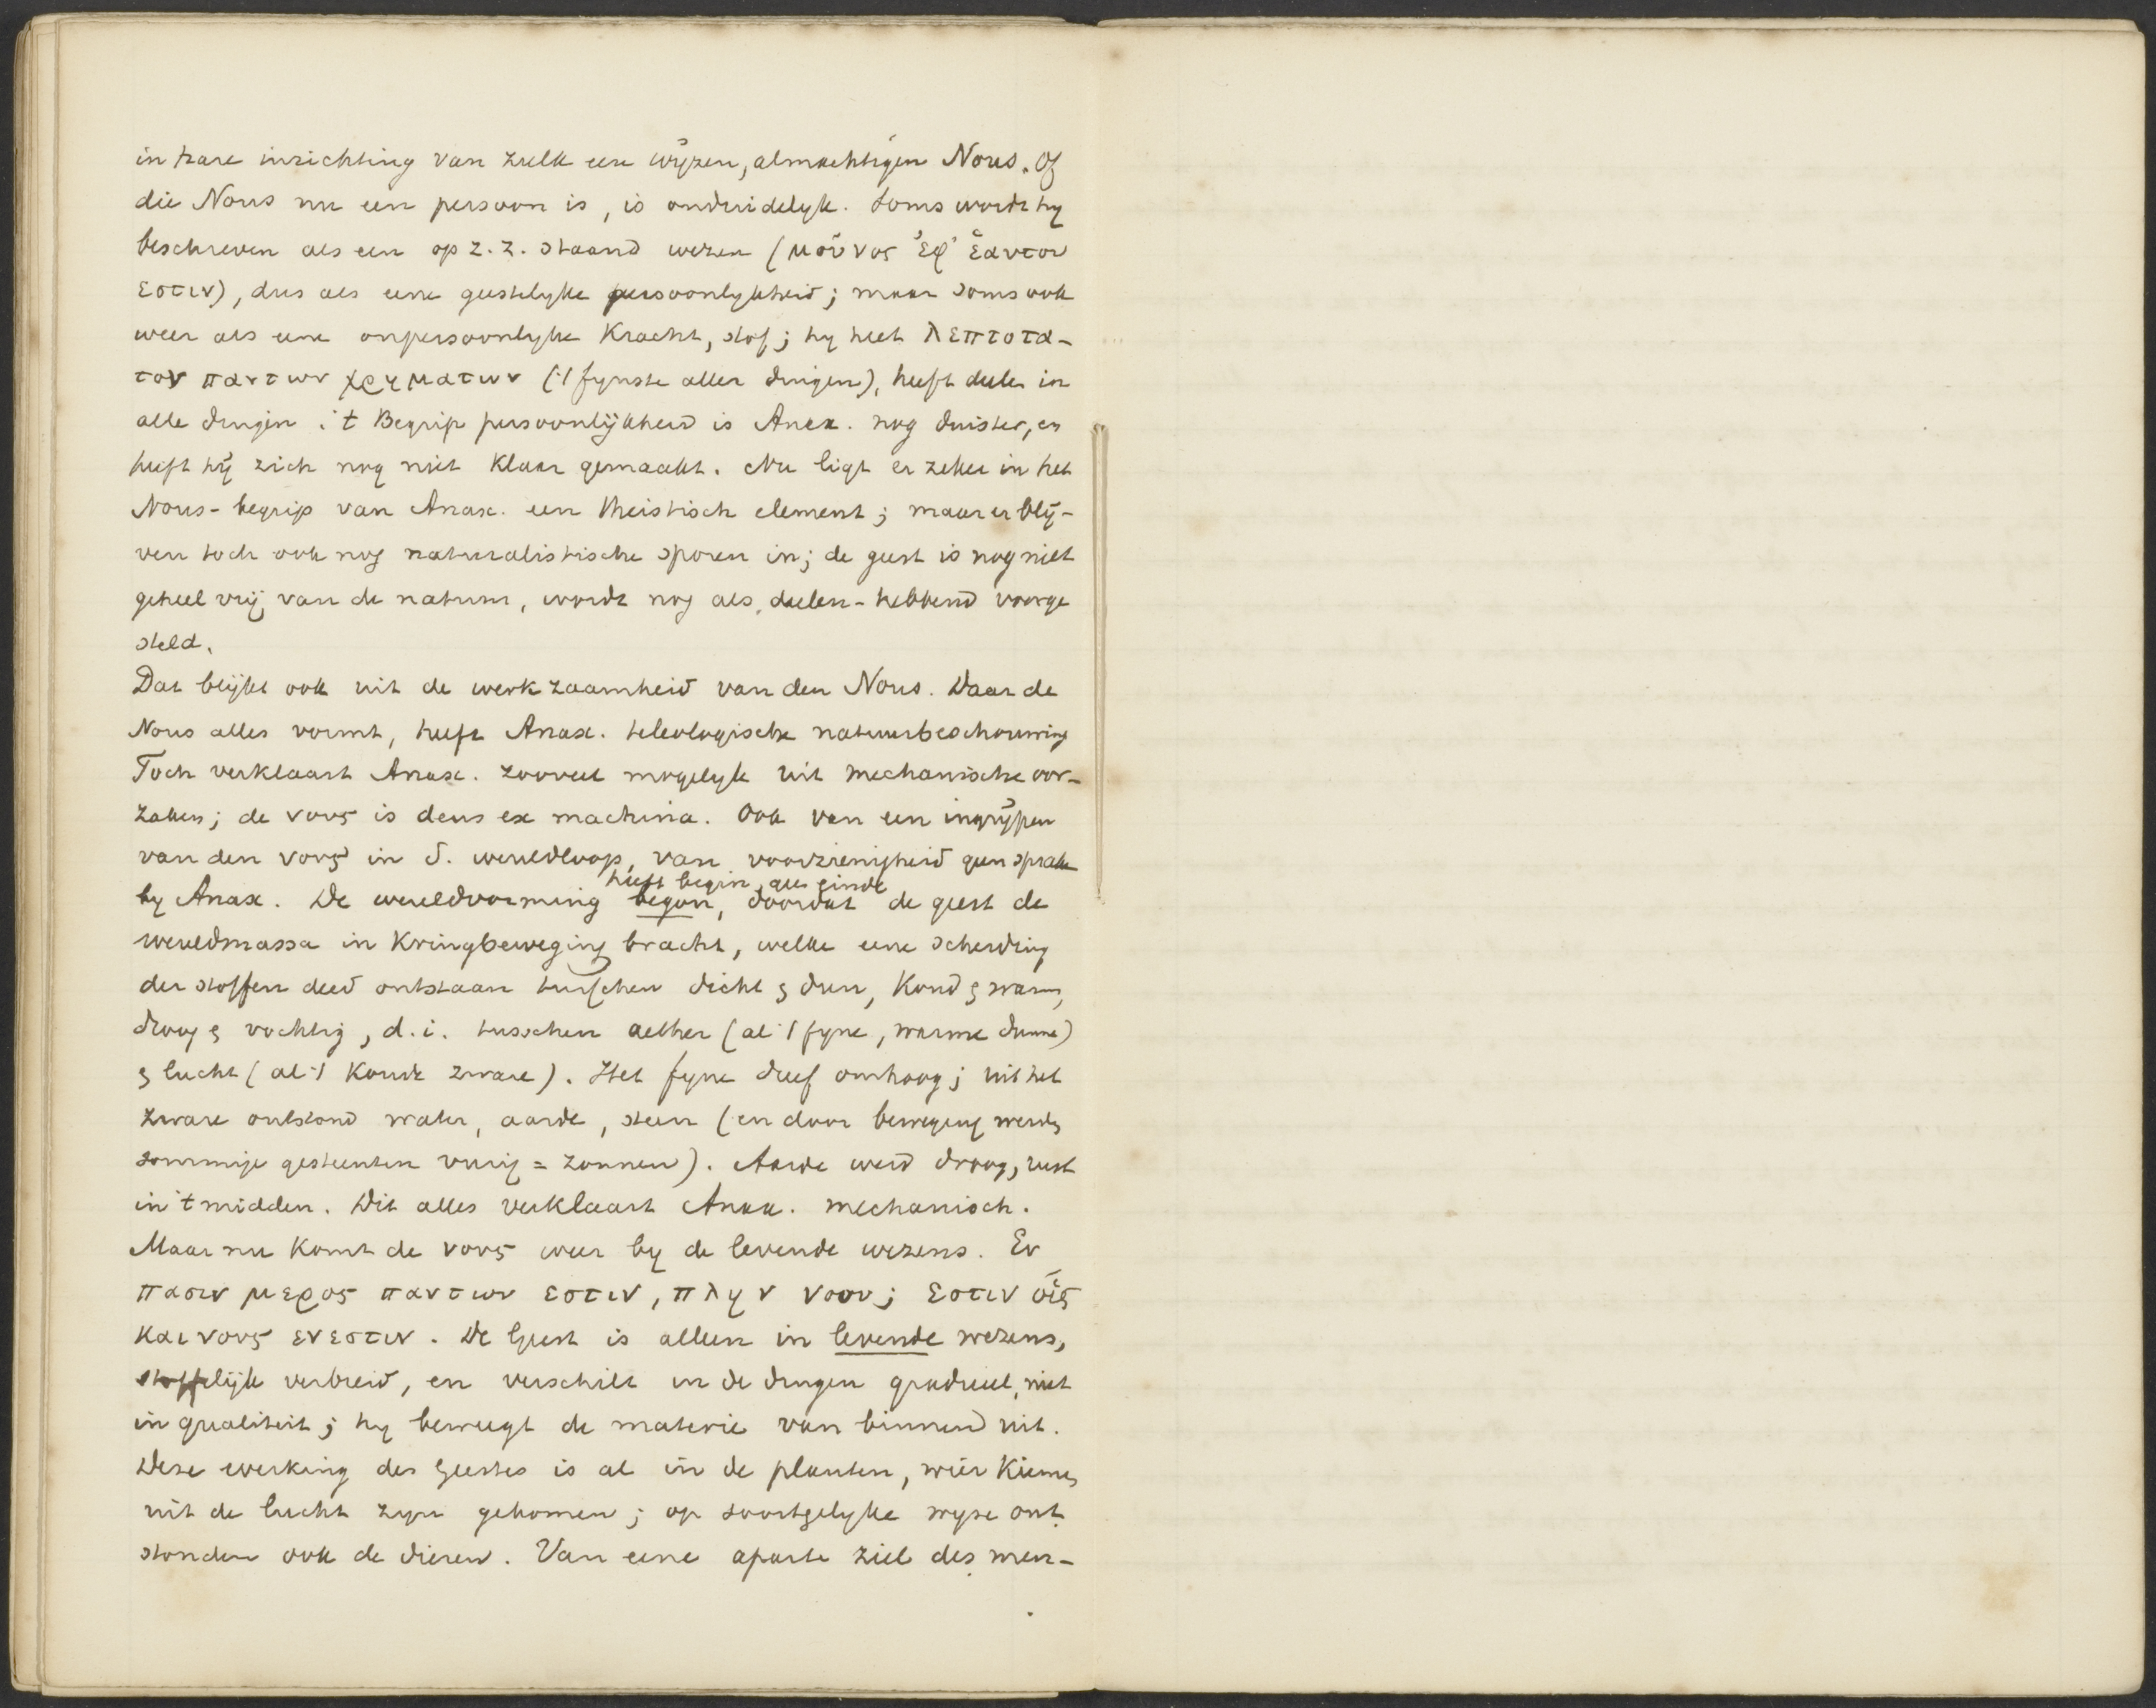 in hare inrichting van zulk een wijzen, almachtigen Nous. Of
die Nous nu een persoon is, is onduidelyk. Soms wordt hy
beschreven als een op z. z. staand wezen (μοῦνος ἐφ' ἑαυτοῦ
εστιν), dus als eene geestelyke persoonlykheid; maar soms ook
weer als eene onpersoonlyke kracht, stof; hy heet λεπτοτα-
τον παντων χρημάτων ('t fynste aller dingen), heeft deelen in
alle dingen: 't Begrip persoonlijkheid is Anax. nog duister, en
heeft hij zich nog niet klaar gemaakt. Nu ligt er zeker in het
Nous-begrip van Anax. een theistisch element; maar er blij-
ven toch ook nog naturalistische sporen in; de geest is nog niet
geheel vrij van de natuur, wordt nog als deelen-hebbend voorge
steld.
Dat blijkt ook uit de werkzaamheid van den Nous. Daar de
Nous alles vormt, heeft Anax. teleologische natuurbeschouwing
Toch verklaart Anax. zooveel mogelyk uit mechanische oor-
zaken; de νους is deus ex machina. Ook van een ingrijpen
van den νους in d. wereldloop, van voorzienigheid geen sprake
heeft begin, geen einde
by Anax. De wereldvorming begon, doordat de geest de
wereldmassa in kringbeweging bracht, welke eene scheiding
der stoffen deed ontstaan tusschen dicht & dun, koud & warm,
droog & vochtig, d.i. tusschen aether (al 't fyne, warme dunne)
& lucht (al 't koude zware). Het fyne dreef omhoog; uit het
zware ontstond water, aarde, steen (en door beweging werden
sommige gesteenten vurig = zonnen). Aarde werd droog, rust
in 't midden. Dit alles verklaart Anax. mechanisch.
Maar nu komt de νους weer by de levende wezens. Εν
πασιν μερος παντων εστιν, πλην νοου; εστιν οἷς
και νους ενεστιν. De Geest is alleen in levende wezens,
stoffelijk verbreid, en verschilt in de dingen gradueel, niet
in qualiteit; hy beweegt de materie van binnen uit.
Deze werking des Geestes is al in de planten, wier kiemen
uit de lucht zyn gekomen; op soortgelyke wyze ont
stonden ook de dieren. Van eene aparte ziel des men-